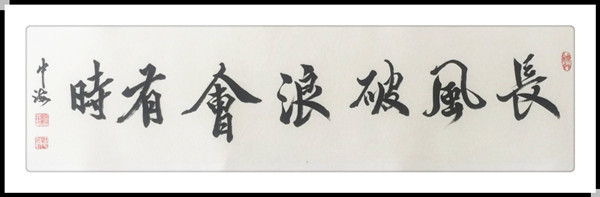 長風破浪會有時
中海